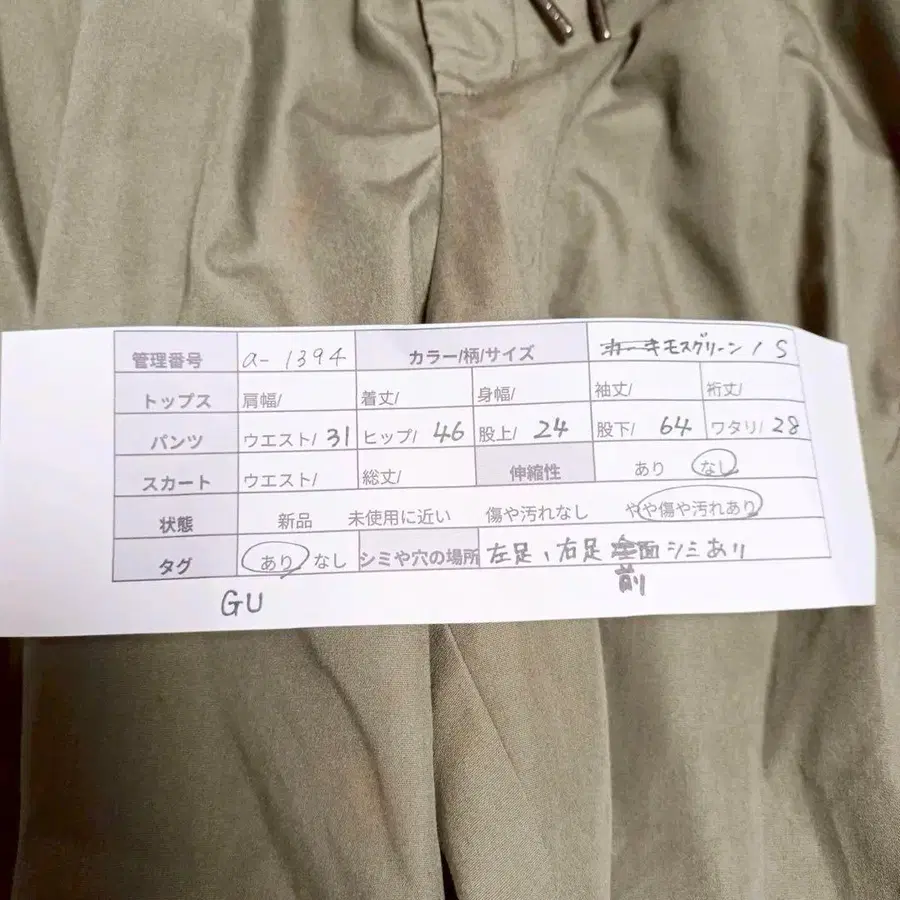 管理番号 a-1394 カラー/柄/サイズ カーキモスグリーン / S
トップス 肩幅/ 着丈/ 身幅/ 袖丈/ 裄丈/
パンツ ウエスト/ 31 ヒップ/ 46 股上/ 24 股下/ 64 ワタリ/ 28
スカート ウエスト/ 総丈/ 伸縮性 あり なし
状態 新品 未使用に近い 傷や汚れなし やや傷や汚れあり
タグ あり なし シミや穴の場所 左足、右足 全面シミあり
前
GU